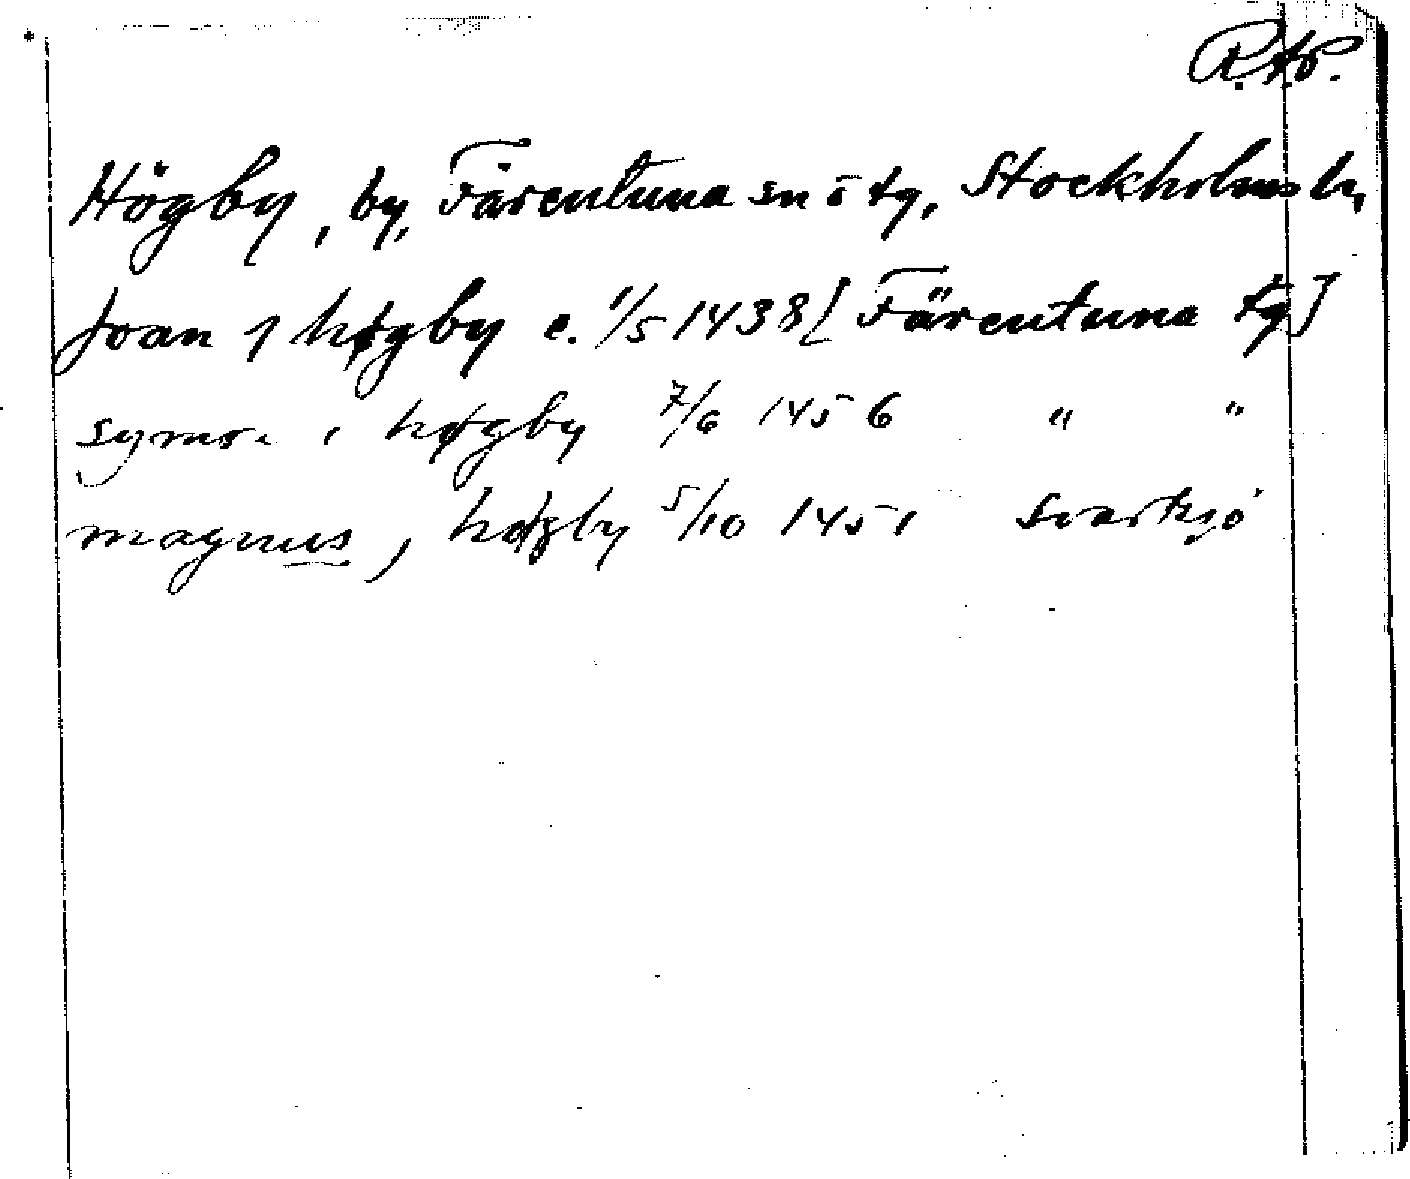 R.A.P.
Högby, by, Färentuna sn o tg, Stockholms ln
Joan j høgby e. 1/5 1438 [Färentuna tg]
symo. i høgby 7/6 1456 " "
magnus, høgby 5/10 1451 Svartsjö